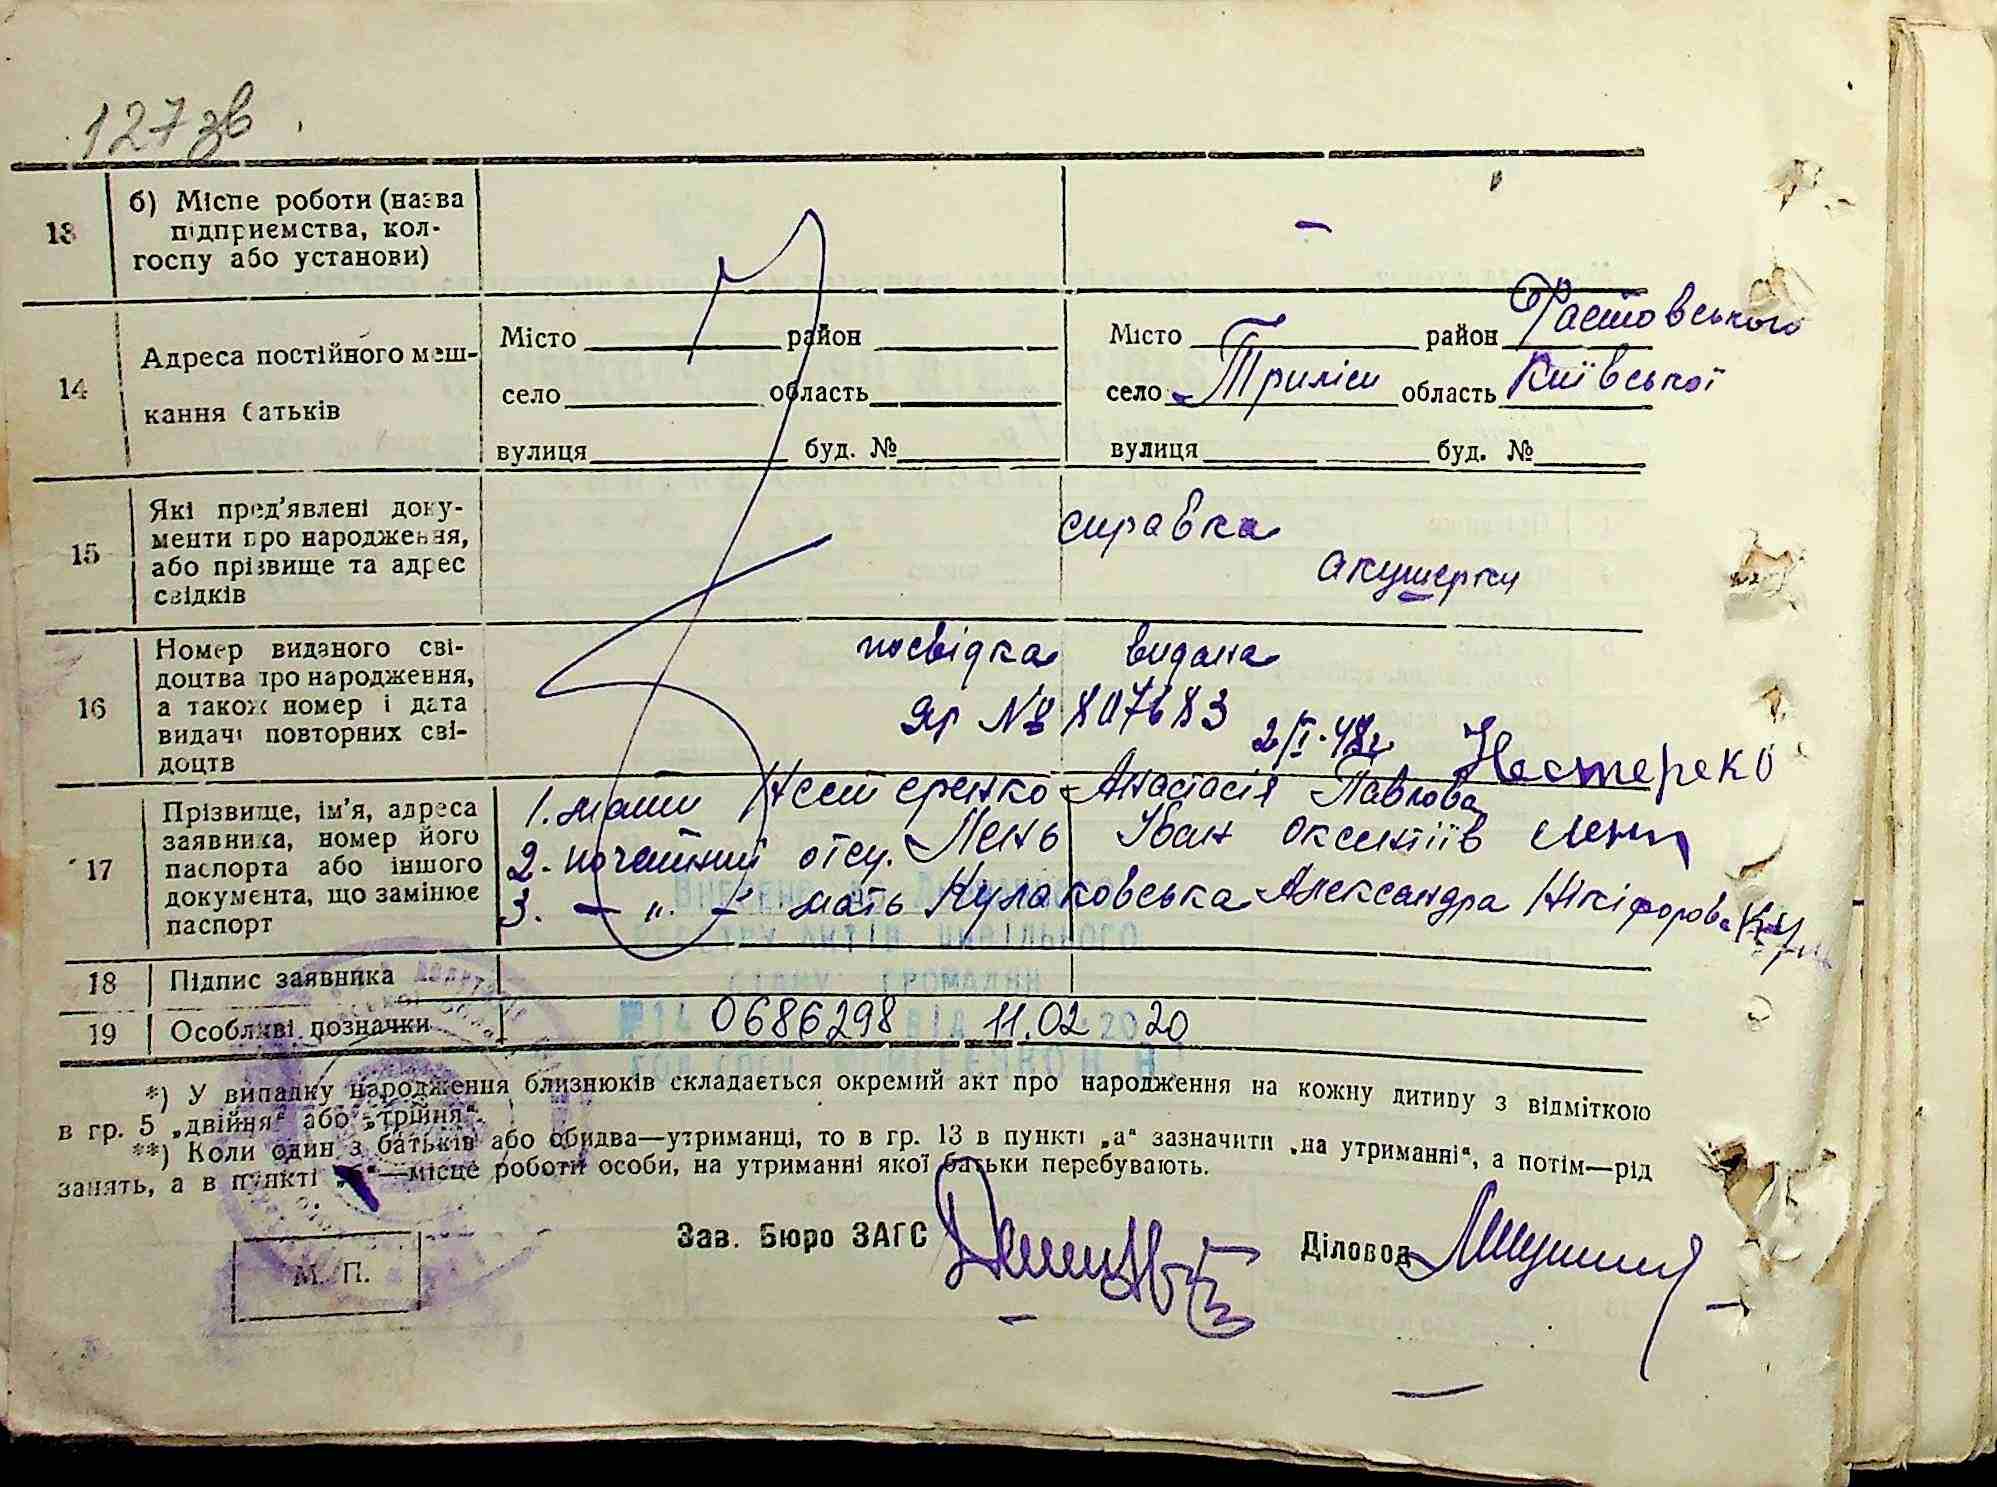 127 зв
13 б) Місце роботи (назва підприємства, колгоспу або установи) —
14 Адреса постійного мешкання батьків
Місто район Місто район Фастовського
село область село Триліси область Київської
вулиця буд. № вулиця буд. №
15 Які пред'явлені документи про народження, або прізвище та адрес свідків
справка
акушерки
16 Номер виданого свідоцтва про народження, а також номер і дата видачі повторних свідоцтв
посвідка видана
Яр № 807683 2/I-48г
Нестереко
17 Прізвище, ім'я, адреса заявника, номер його паспорта або іншого документа, що замінює паспорт
1. мати Нестеренко Анастасія Павлова
2. почетний отец. Лень Іван Оксентіїв Лень
3. — „ — мать Кулаковська Александра Нікіфорова
18 Підпис заявника
19 Особливі позначки
Внесено до Державного
реєстру актів цивільного
стану громадян
№ 14 0686298 від 11.02 2020
*) У випадку народження близнюків складається окремий акт про народження на кожну дитину з відміткою
в гр. 5 „двійня“ або „трійня“.
**) Коли один з батьків або обидва—утриманці, то в гр. 13 в пункті „а“ зазначити „на утриманні“, а потім—рід
занять, а в пункті „б“—місце роботи особи, на утриманні якої батьки перебувають.
Зав. Бюро ЗАГС Діловод
М. П.